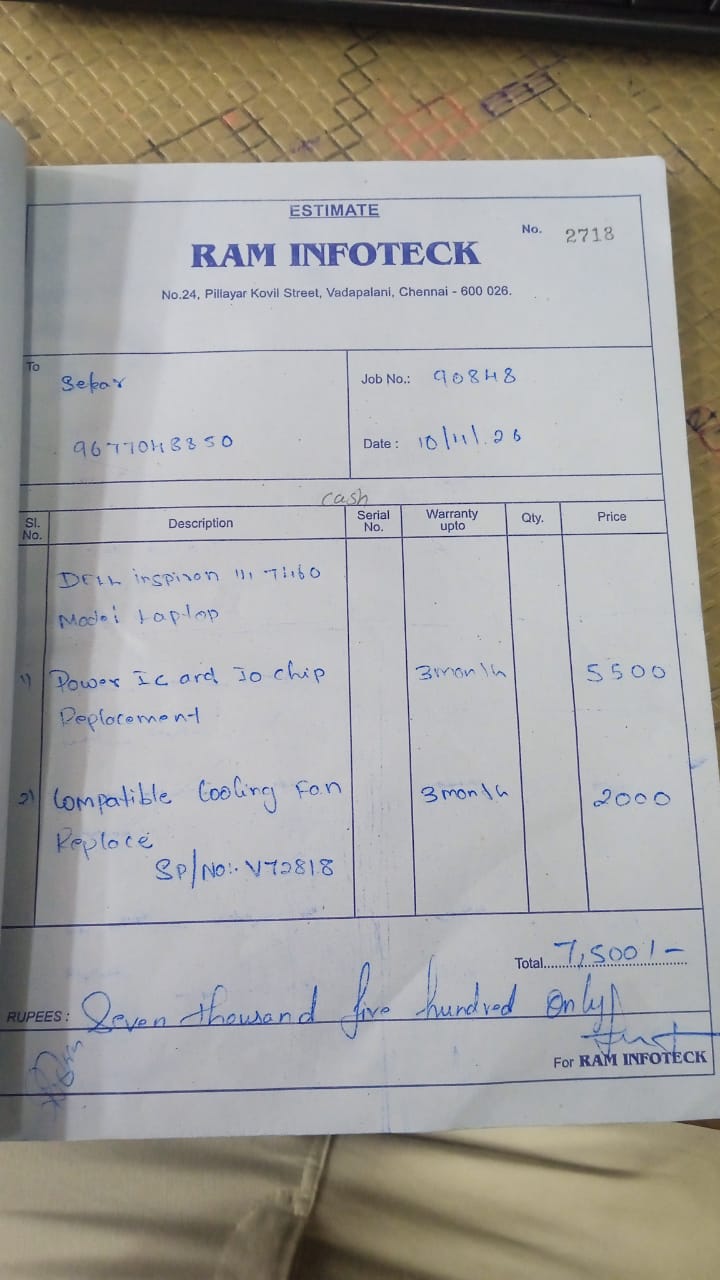 ESTIMATE
No. 2718
RAM INFOTECK
No.24, Pillayar Kovil Street, Vadapalani, Chennai - 600 026.
To
Sekar
Job No.: 90848
9677048350
Date: 10/11/.26
cash
Sl. No. Description Serial No. Warranty upto Qty. Price
DELL inspiron
Model Laptop
1) Power IC and Io chip 3 month 5500
Replacement
2) Compatible Cooling Fan 3 month 2000
Replace
SP/NO:. V72818
Total 7,500/-
RUPEES: Seven thousand five hundred only
For RAM INFOTECK